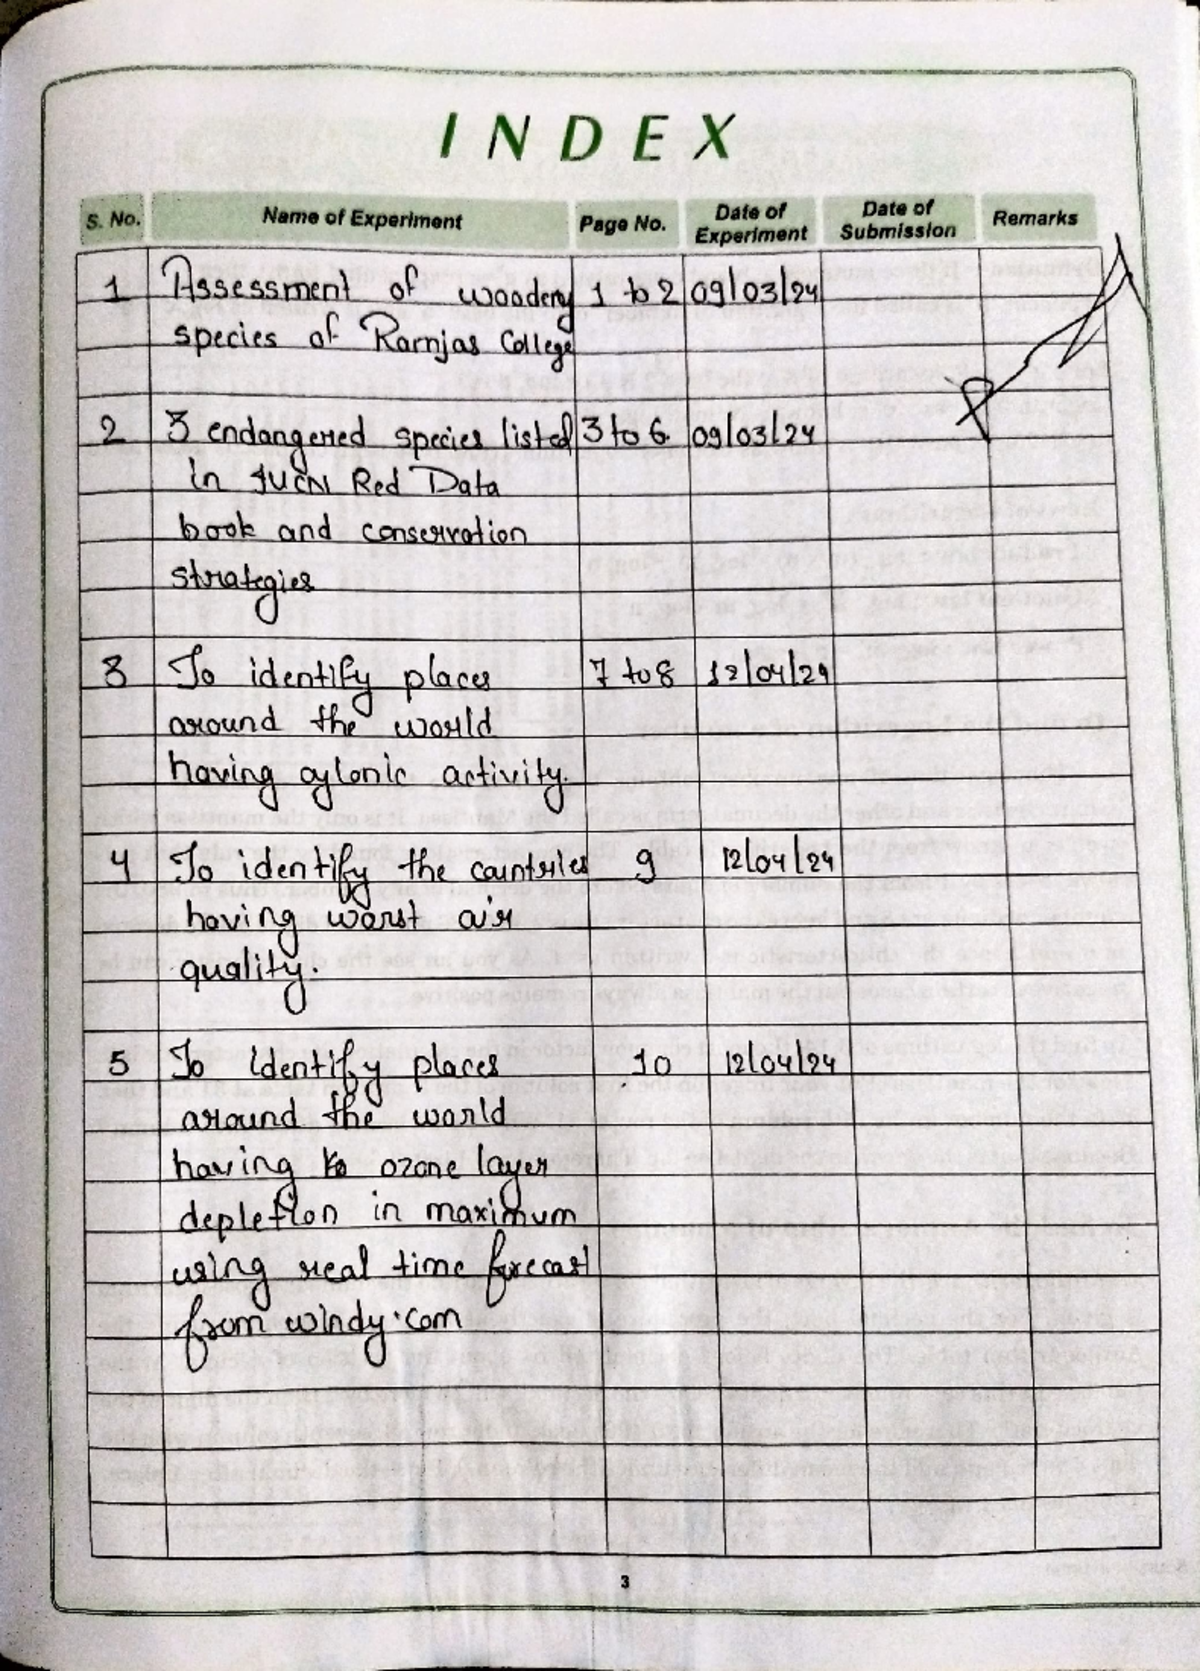 INDEX
S. No. Name of Experiment Page No. Date of Experiment Date of Submission Remarks
1 Assessment of woodery 1 to 2 09/03/24
species of Ramjas College
2 3 endangered species listed 3 to 6. 09/03/24
in IUCN Red Data
book and conservation
strategies
3 To identify places 7 to 8 12/04/24
around the world
having cylonic activity.
4 To identify the countries 9 12/04/24
having worst air
quality.
5 To identify places 10 12/04/24
around the world
having ozone layer
depletion in maximum
using real time forecast
from windy.com
3